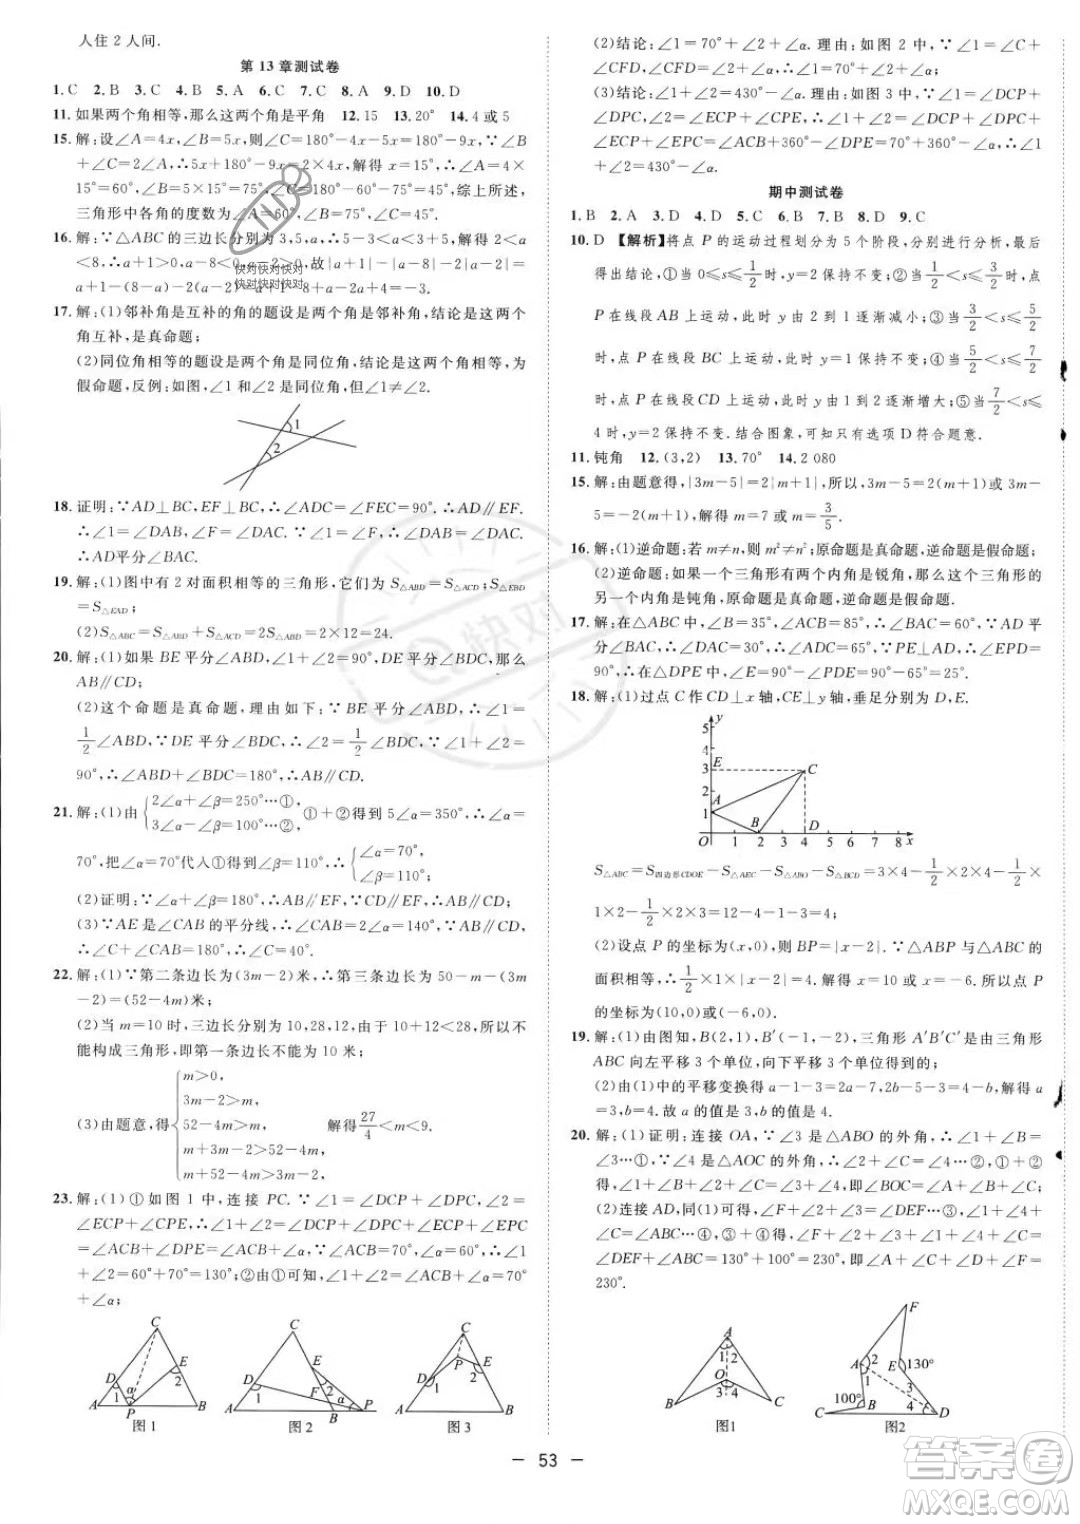 人住 2 人间.
第 13 章测试卷
1. C  2. B  3. C  4. B  5. A  6. C  7. C  8. A  9. D  10. D
11. 如果两个角相等,那么这两个角是平角  12. 15  13. 20°  14. 4 或 5
15. 解:设∠A=4x,∠B=5x,则∠C=180°-4x-5x=180°-9x,∵∠B
+∠C=2∠A,∴5x+180°-9x=2×4x,解得 x=15°,∴∠A=4×
15°=60°,∠B=5×15°=75°,∠C=180°-9×15°=45°,综上所述,
三角形中各角的度数为∠A=60°,∠B=75°,∠C=45°.
16. 解:∵△ABC 的三边长分别为 3,5,a,∴5-3<a<3+5,解得 2<a
<8,∴a+1>0,a-8<0,a-2>0,故|a+1|-|a-8|-2|a-2|=
a+1-(8-a)-2(a-2)=a+1-8+a-2a+4=-3.
17. 解:(1)邻补角是互补的角的题设是两个角是邻补角,结论是这两个
角互补,是真命题;
(2)同位角相等的题设是两个角是同位角,结论是这两个角相等,为
假命题,反例:如图,∠1 和∠2 是同位角,但∠1≠∠2.
1
2
18. 证明:∵AD⊥BC,EF⊥BC,∴∠ADC=∠FEC=90°.∴AD∥EF.
∴∠1=∠DAB,∠F=∠DAC.又∵∠F=∠1,∴∠DAB=∠DAC.
∴AD平分∠BAC.
19. 解:(1)图中有 2 对面积相等的三角形,它们为 S△ABD=S△ACD;S△EBD
=S△EAD;
(2)S△ABC=S△ABD+S△ACD=2S△ABD=2×12=24.
20. 解:(1)如果 BE平分∠ABD,∠1+∠2=90°,DE平分∠BDC,那么
AB∥CD;
(2)这个命题是真命题,理由如下:∵BE 平分∠ABD,∴∠1=
1/2∠ABD,∵DE 平分∠BDC,∴∠2=1/2∠BDC,∵∠1+∠2=
90°,∴∠ABD+∠BDC=180°,∴AB∥CD.
21. 解:(1)由{2∠α+∠β=250°…①, 3∠α-∠β=100°…②,①+②得到 5∠α=350°,∴∠α=
70°,把∠α=70°代入①得到∠β=110°,∴{∠α=70°, ∠β=110°;
(2)证明:∵∠α+∠β=180°,∴AB∥EF,∵CD∥EF,∴AB∥CD;
(3)∵AE是∠CAB的平分线,∴∠CAB=2∠α=140°,∵AB∥CD,
∴∠C+∠CAB=180°,∴∠C=40°.
22. 解:(1)∵第二条边长为(3m-2)米,∴第三条边长为 50-m-(3m
-2)=(52-4m)米;
(2)当 m=10 时,三边长分别为 10,28,12,由于 10+12<28,所以不
能构成三角形,即第一条边长不能为 10 米;
(3)由题意,得{m>0, 3m-2>0, 52-4m>0, m+3m-2>52-4m, m+52-4m>3m-2, 解得 27/4<m<9.
23. 解:(1)①如图 1 中,连接 PC.∵∠1=∠DCP+∠DPC,∠2=
∠ECP+∠CPE,∴∠1+∠2=∠DCP+∠DPC+∠ECP+∠EPC
=∠ACB+∠DPE=∠ACB+∠α,∵∠ACB=70°,∠α=60°,∴∠1
+∠2=70°+60°=130°;②由①可知,∠1+∠2=∠ACB+∠α=70°
+∠α;
C D E 1 α 2 A P B 图1
C E D 1 F 2 α A B P 图 2
C P D E 1 2 A B 图 3
(2)结论:∠1=70°+∠2+∠α.理由:如图 2 中,∵∠1=∠C+
∠CFD,∠CFD=∠2+∠α,∴∠1=70°+∠2+∠α;
(3)结论:∠1+∠2=430°-∠α.理由:如图 3 中,∵∠1=∠DCP+
∠DPC,∠2=∠ECP+∠CPE,∴∠1+∠2=∠DCP+∠DPC+
∠ECP+∠EPC=∠ACB+360°-∠DPE=70°+360°-∠α,∴∠1
+∠2=430°-∠α.
期中测试卷
1. B  2. A  3. D  4. D  5. C  6. B  7. B  8. D  9. C
10. D 【解析】将点 P 的运动过程划分为 5 个阶段,分别进行分析,最后
得出结论,①当 0≤s≤1/2时,y=2 保持不变;②当1/2<s≤3/2时,点
P 在线段 AB 上运动,此时 y 由 2 到 1 逐渐减小;③当3/2<s≤5/2
时,点 P 在线段 BC 上运动,此时 y=1 保持不变;④当5/2<s≤7/2
时,点 P 在线段CD 上运动,此时 y 由 1 到 2 逐渐增大;⑤当7/2<s≤
4 时,y=2 保持不变.结合图象,可知只有选项 D 符合题意.
11. 钝角  12. (3,2)  13. 70°  14. 2 080
15. 解:由题意得,|3m-5|=2|m+1|,所以 3m-5=2(m+1)或 3m-
5=-2(m+1),解得 m=7 或 m=3/5.
16. 解:(1)逆命题:若 m≠n,则 m²≠n²;原命题是真命题,逆命题是假命题.
(2)逆命题:如果一个三角形的两个内角是锐角,那么这个三角形的
另一个内角是钝角,原命题是真命题,逆命题是假命题.
17. 解:在△ABC 中,∠B=35°,∠ACB=85°,∴∠BAC=60°.∵AD
平分∠BAC,∴∠CAD=30°.∴∠ADC=65°.∵PE⊥AD,∴∠DPE=
90°.在△DPE 中,∠E=90°-∠ADC=90°-65°=25°.
18. 解:(1)过点 C 作CD⊥x 轴,CE⊥y 轴,垂足分别为 D,E.
y 5 4 E 3 C 2 1 A B D O 1 2 3 4 5 6 7 8 x
S△ABC=S四边形CDOE-S△AEC-S△ABO-S△BCD=3×4-1/2×2×4-1/2×
1×2-1/2×2×3=4.
(2)设点 P 的坐标为(x,0),则 BP=|x-2|.∵△ABP 与△ABC 的
面积相等,∴1/2×1×|x-2|=4.解得 x=10 或 x=-6.所以点 P
的坐标为(10,0)或(-6,0).
19. 解:(1)由图知,B(2,1),B′(-1,-2),三角形 A′B′C′是由三角形
ABC 向左平移 3 个单位,向下平移 3 个单位得到的;
(2)由(1)中的平移变换得 a-1-3=2a-7,2b-5-3=4-b,解得 a
=3,b=4.故 a 的值是 3,b 的值为 4.
20. 解:(1)证明:连接 OA,∵∠3=△ABO 的外角,∴∠1+∠B=
∠3…①,∵∠4 是△AOC 的外角,∴∠2+∠C=∠4…②,①+②
得,∠1+∠B+∠2+∠C=∠3+∠4,即∠BOC=∠A+∠B+∠C;
(2)连接 AD,同(1)可得,∠F+∠2+∠3=∠DEF…③,∠1+∠4+
∠C=∠ABC…④,③+④得,∠F+∠2+∠3+∠1+∠4+∠C=
∠DEF+∠ABC=130°+100°=230°,即∠A+∠C+∠D+∠F=
230°.
A 1 2 O 3 4 B C 图1
F A 2 E 130° 1 3 100° B 4 C D 图2
— 53 —
快对快对快对
快对快对快对
快对
答案圈
MXQE.COM